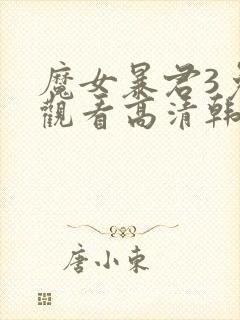 魔女暴君3免
觀看高清韓
唐小東